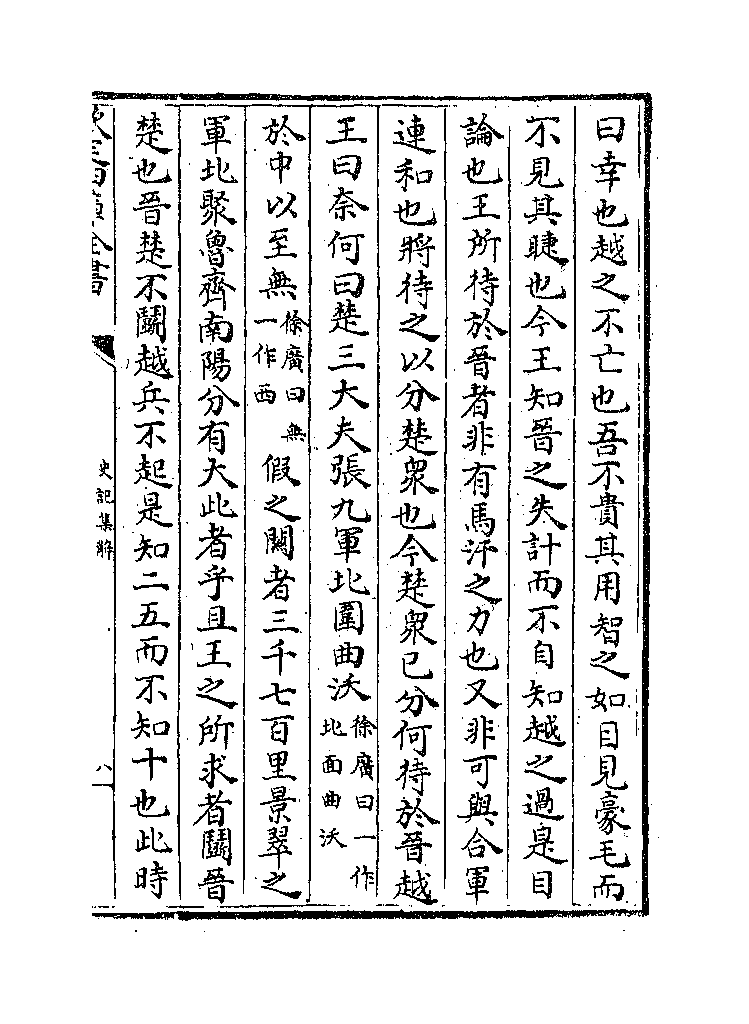 曰幸也越之不亡也吾不貴其用智之如目見豪毛而
不見其睫也今王知晉之失計而不自知越之過是目
論也王所待於晉者非有馬汗之力也又非可與合軍
連和也將待之以分楚衆也今楚衆已分何待於晉越
王曰奈何曰楚三大夫張九軍北圍曲沃徐廣曰一作北面曲沃
於中以至無徐廣曰無一作西假之關者三千七百里景翠之
軍北聚魯齊南陽分有大此者乎且王之所求者鬭晉
楚也晉楚不鬭越兵不起是知二五而不知十也此時
欽定四庫全書
史記集解
八